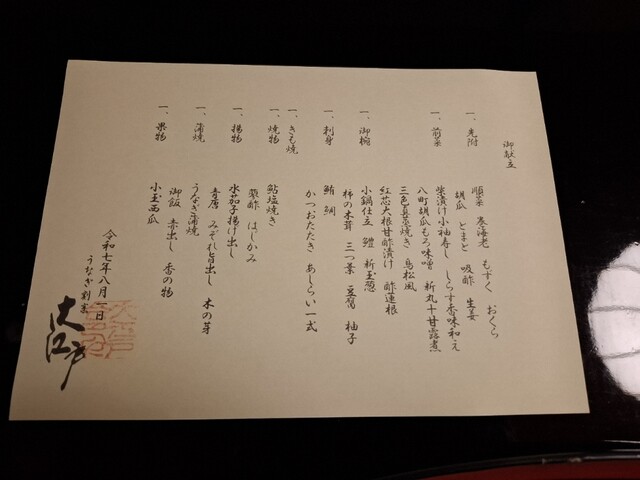 御献立
一、先附
順菜 巻海老 もずく おくら
胡瓜 とまと 吸酢 生姜
一、前菜
柴漬け小袖寿し しらす香味和え
八町胡瓜もろ味噌 新丸十甘露煮
三色真茶焼き 鳥松風
紅芯大根甘酢漬け 酢蓮根
一、御椀
小鍋仕立 鱧 新玉葱
柿の木茸 三つ葉 豆腐 柚子
一、刺身
鮪 鯛
かつおたたき あしらい一式
一、きも焼
一、焼物
鮎塩焼き
蓼酢 はじかみ
一、揚物
水茄子揚げ出し
青唐 みぞれ旨出し 木の芽
一、蒲焼
うなぎ蒲焼
御飯 赤出し 香の物
一、果物
小玉西瓜
令和七年八月一日
うなぎ割烹
大江戸